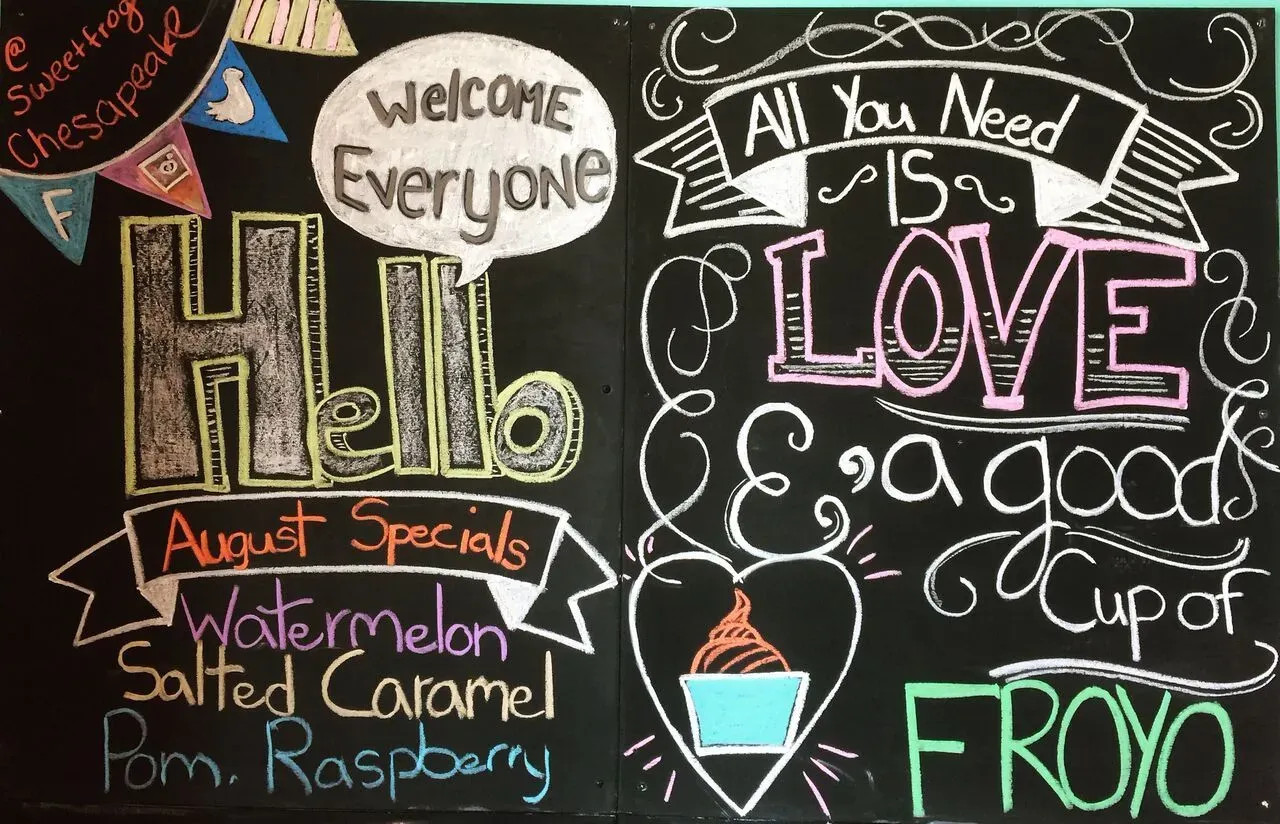 @
Sweetfrog
Chesapeake
F
Welcome
Everyone
Hello
August Specials
Watermelon
Salted Caramel
Pom. Raspberry
All You Need
IS
LOVE
& a good
Cup of
FROYO